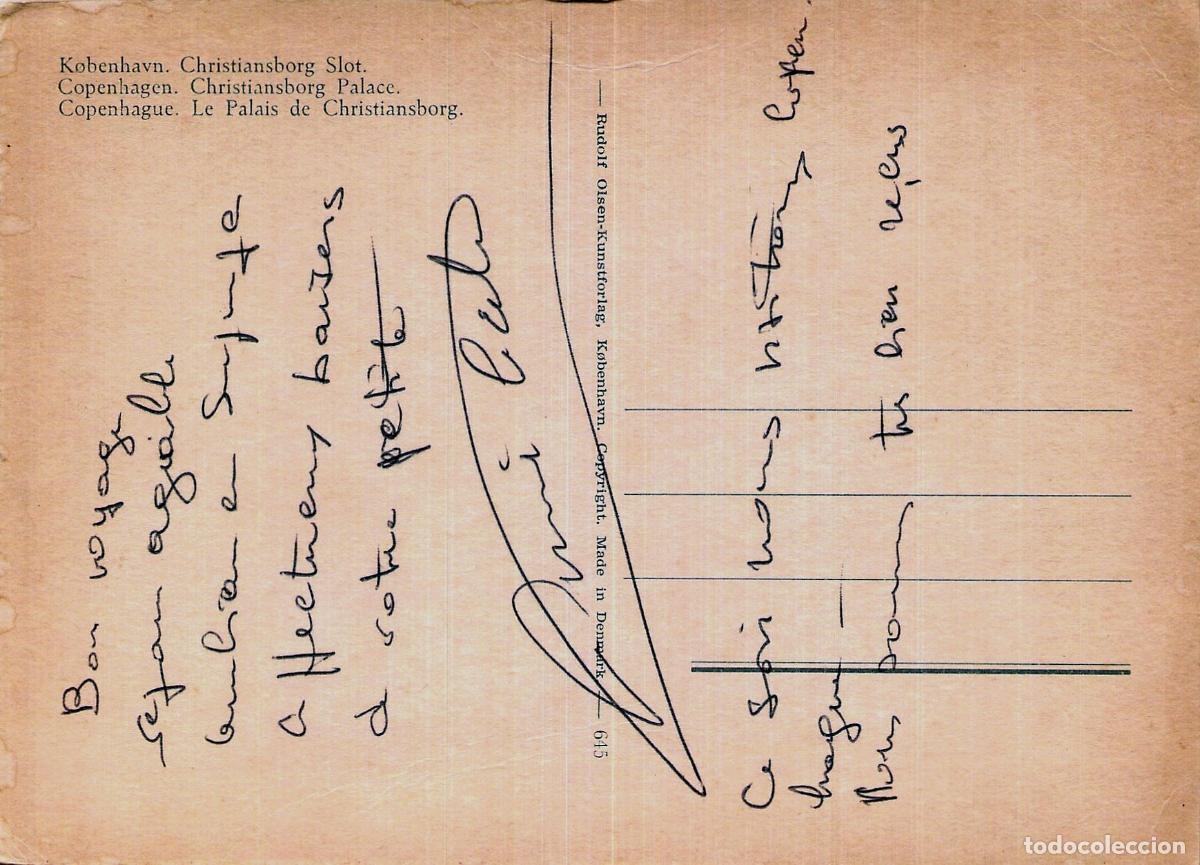 København. Christiansborg Slot.
Copenhagen. Christiansborg Palace.
Copenhague. Le Palais de Christiansborg.
Bon voyage
séjour agréable
ambiance
a bientôt baisers
de votre petite
— Rudolf Olsen-Kunstforlag, København. Copyright. Made in Denmark — 645
Ce soir nous visitons Copen-
hague —
Nous sommes très bien reçus
todocoleccion